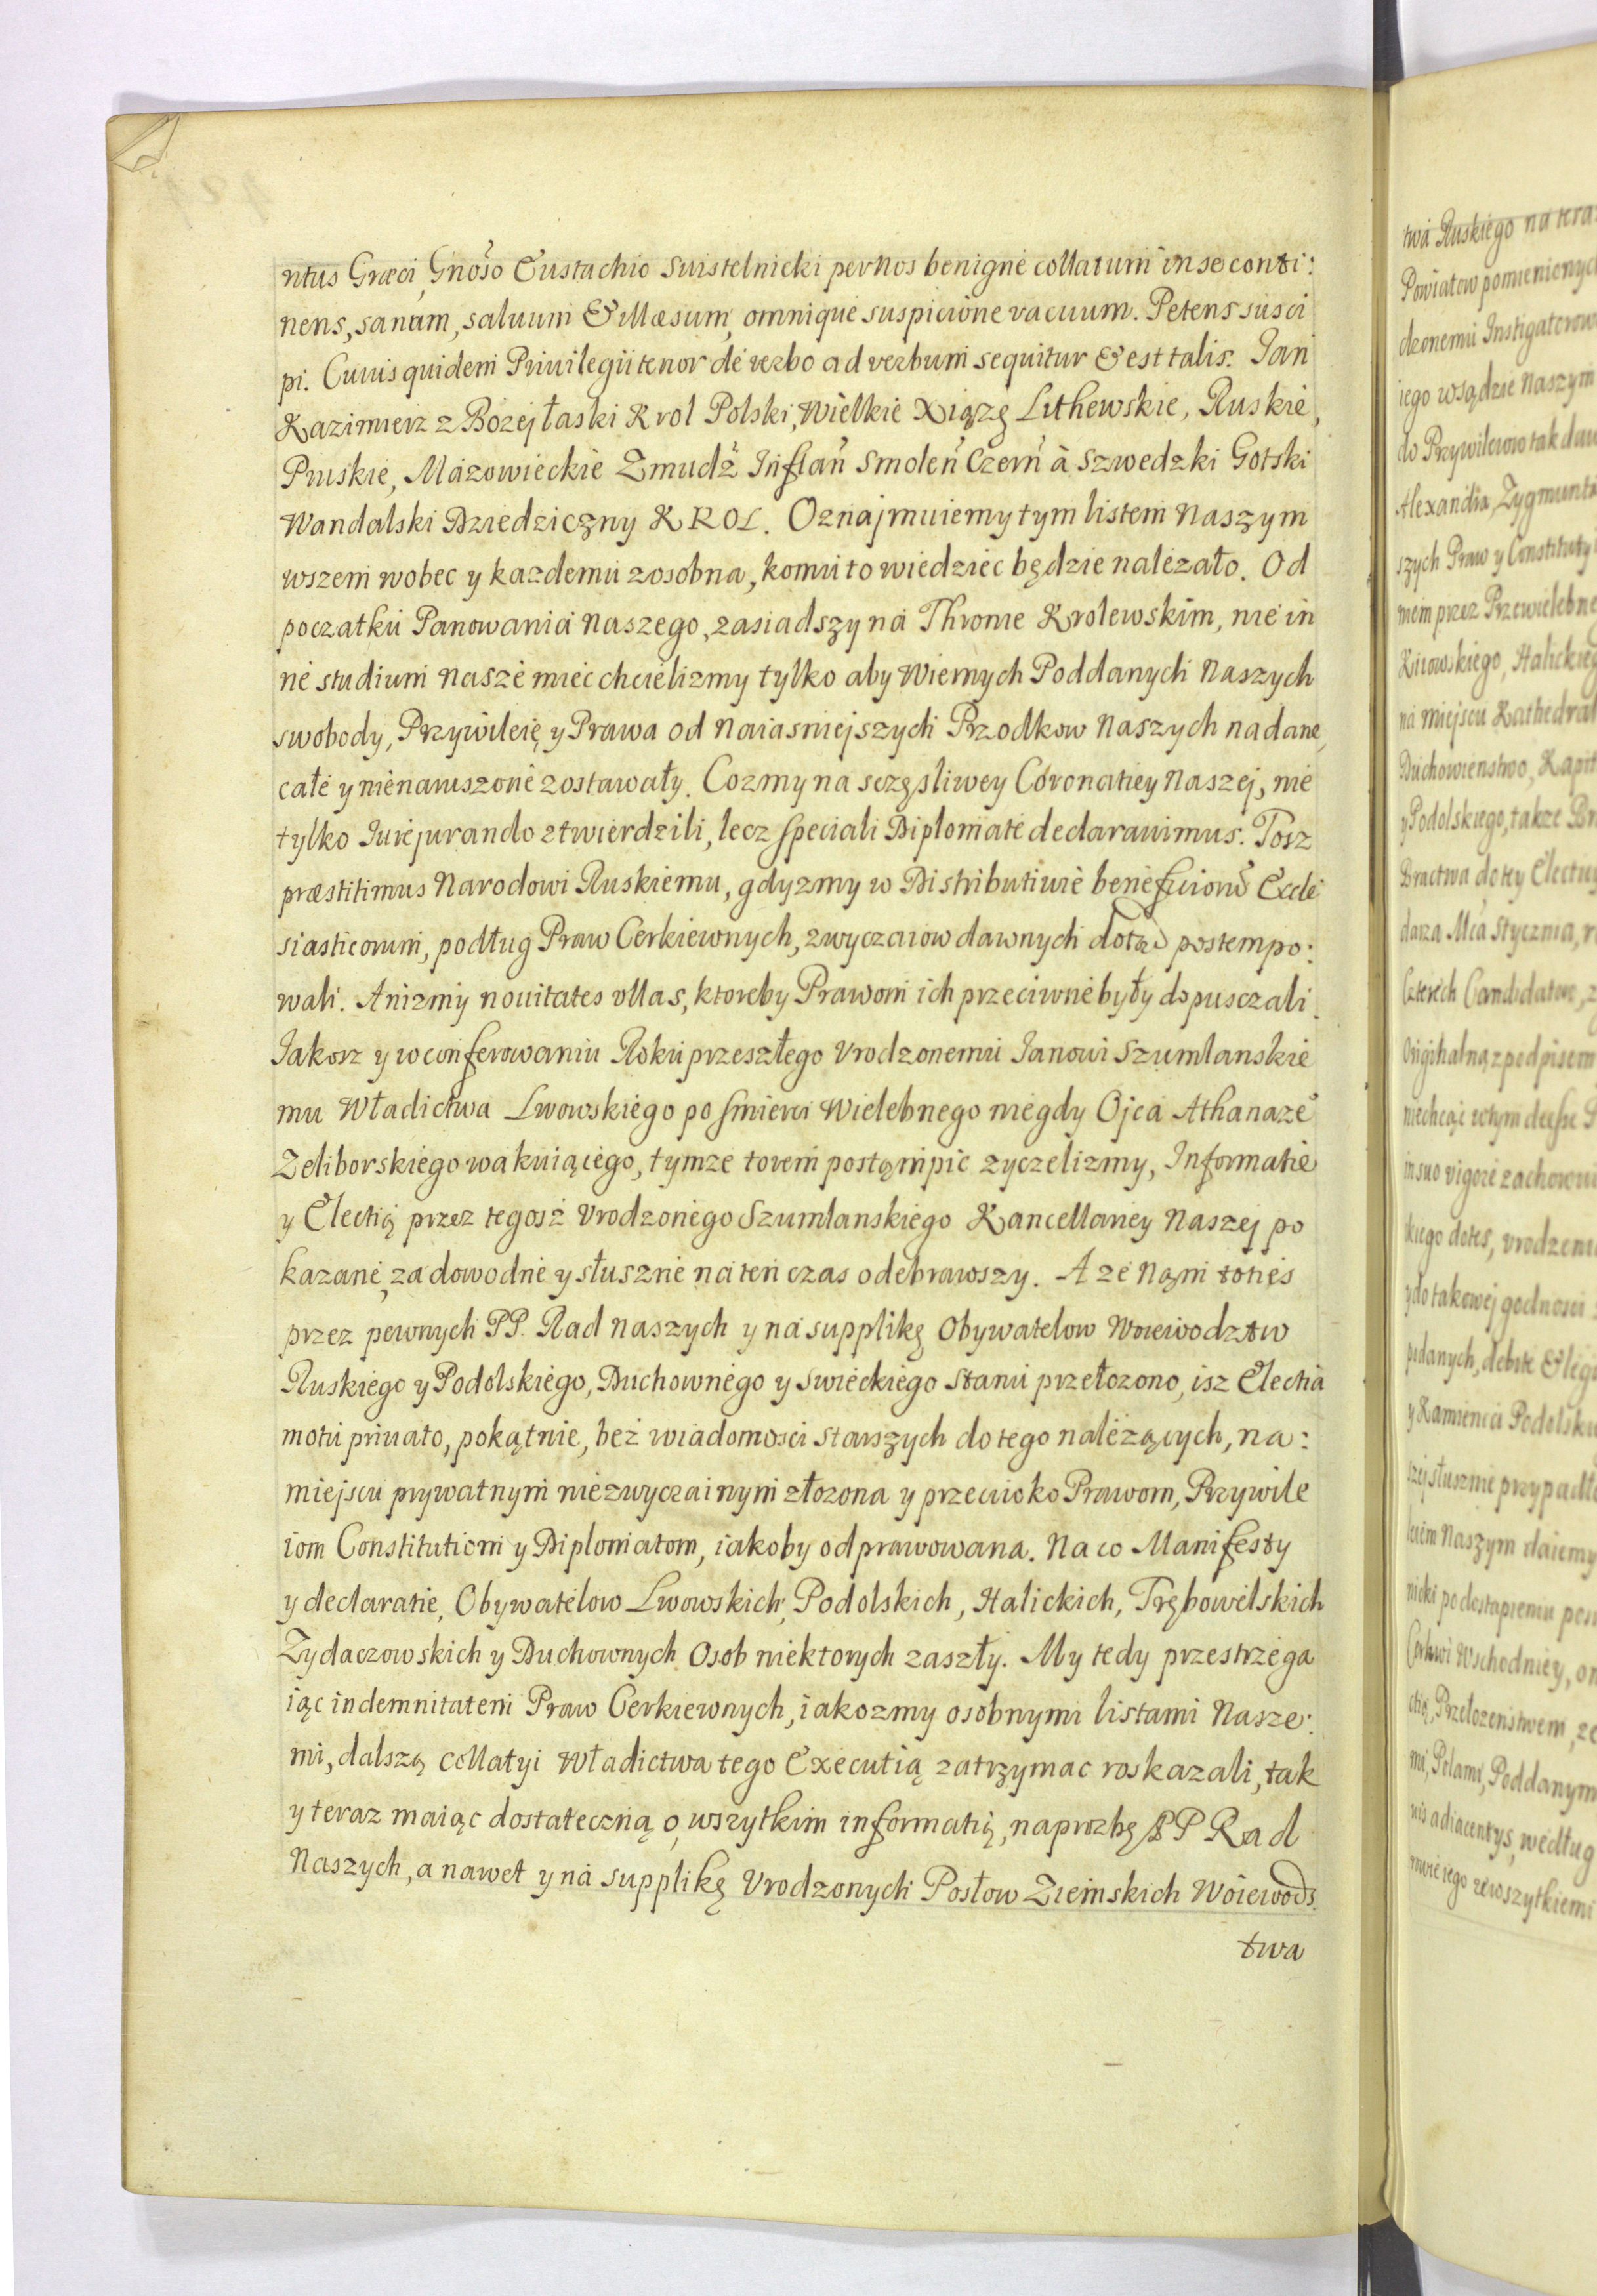 ntus Græci, Gnoso Eustachio Suistelnicki per Nos benigne collatum in se conti:
nens, sanum, saluum & illæsum, omnique suspicione vacuum. Petens susci
pi. Cuius quidem Priuilegii tenor de verbo ad verbum sequitur & est talis. Jan
Kazimierz z Bozej łaski Krol Polski, Wielkie Xiązę Lithewskie, Ruskie,
Pruskie, Mazowieckie Zmudz Inflan Smolen Czern a Szwedzki Gotski
Wandalski Dziedziczny KROL. Oznajmuiemy tym listem Naszym
wszem wobec y kazdemu zosobna, komu to wiedziec będzie nalezało. Od
początku Panowania Naszego, zasiadszy na Thronie Krolewskim, nie in
ne studium nasze miec chcielizmy tylko aby Wiernych Poddanych Naszych
swobody, Przywileię y Prawa od Naiasniejszych Przodkow Naszych nadane,
całe y nienaruszone zostawały. Cozmy na sczęsliwey Coronatiey Naszej, nie
tylko Jurejurando ztwierdzili, lecz speciali Diplomate declarauimus. Tosz
præstitimus Narodowi Ruskiemu, gdyzmy w Distributiuie beneficioru Eccle
siasticorum, podług Praw Cerkiewnych, zwyczaiow dawnych dotąd postempo:
wali. Anizmy nouitates vllas, ktoreby Prawom ich przeciwne były dopusczali.
Jakosz y w conferowaniu Roku przeszłego Vrodzonemu Janowi Szumlanskie
mu Władictwa Lwowskiego po smierci Wielebnego niegdy Ojca Athanaze
Zeliborskiego wakuiącego, tymze torem postąmpic zyczelizmy, Informatie
y Electią przez tegosz Vrodzonego Szumlanskiego Kancellariey Naszej po
kazane, za dowodne y słuszne na ten czas odebrawszy. A ze Nam toties
przez pewnych PP. Rad Naszych y na supplikę Obywatelow Woiewodztw
Ruskiego y Podolskiego, Duchownego y swieckiego Stanu przełozono, isz Electia
motu priuato, pokątnie, bez wiadomosci starszych do tego nalezących, na:
miejscu prywatnym niezwyczainym złozona y przeciwko Prawom, Przywile
iom Constitutiom y Diplomatom, iakoby odprawowana. Na co Manifesty
y declaratie, Obywatelow Lwowskich, Podolskich, Halickich, Trębowelskich
Zydaczowskich y Duchownych Osob niektorych zaszły. My tedy przestrzega
iąc indemnitatem Praw Cerkiewnych, iakozmy osobnymi listami Nasze:
mi, dalszą collatyi Władictwa tego Executią zatrzymac roskazali, tak
y teraz maiąc dostateczną o wszytkim informatią, na prozbę PP Rad
Naszych, a nawet y na supplikę Vrodzonych Posłow Ziemskich Woiewods:
twa
twa Ruskiego na
Powiatow pomienionych
iego w sądzie Naszym
Alexandra, Zygmunta
szych Praw y Constituty
mem przez Przewielebne
Kiiowskiego, Halickieg
na miejscu Kathedral
Duchowienstwo, Kapit
y Podolskiego, takze
Bractwa do tey
Czterech Candidatow,
Originalną z podpisem
in suo vigore
kiego dotes,
y do takowej godnosci
y Kamienca Podolsk
szej słusznie przypadł
Naszym daiemy
Cerkwi Wschodniey,
Przełozenstwem,
Poddanym
według
iego zewszytkiemi